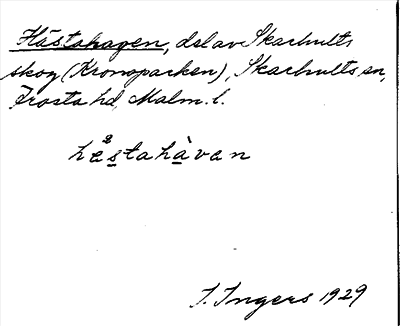 Hästahagen, del av Skarhults
skog (Kronoparken), Skarhults sn,
Frosta hd, Malm. l.
hästahàvan
I. Ingers 1929